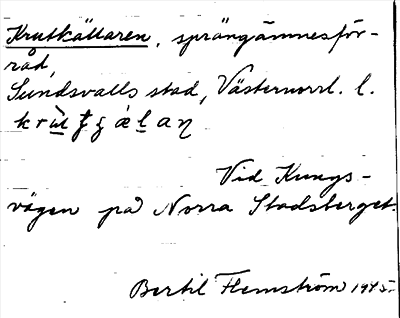 Krutkällaren, sprängämnesför-
råd,
Sundsvalls stad, Västernorrl. l.
Vid Kungs-
vägen på Norra Stadsberget.
Bertil Flemström 1945